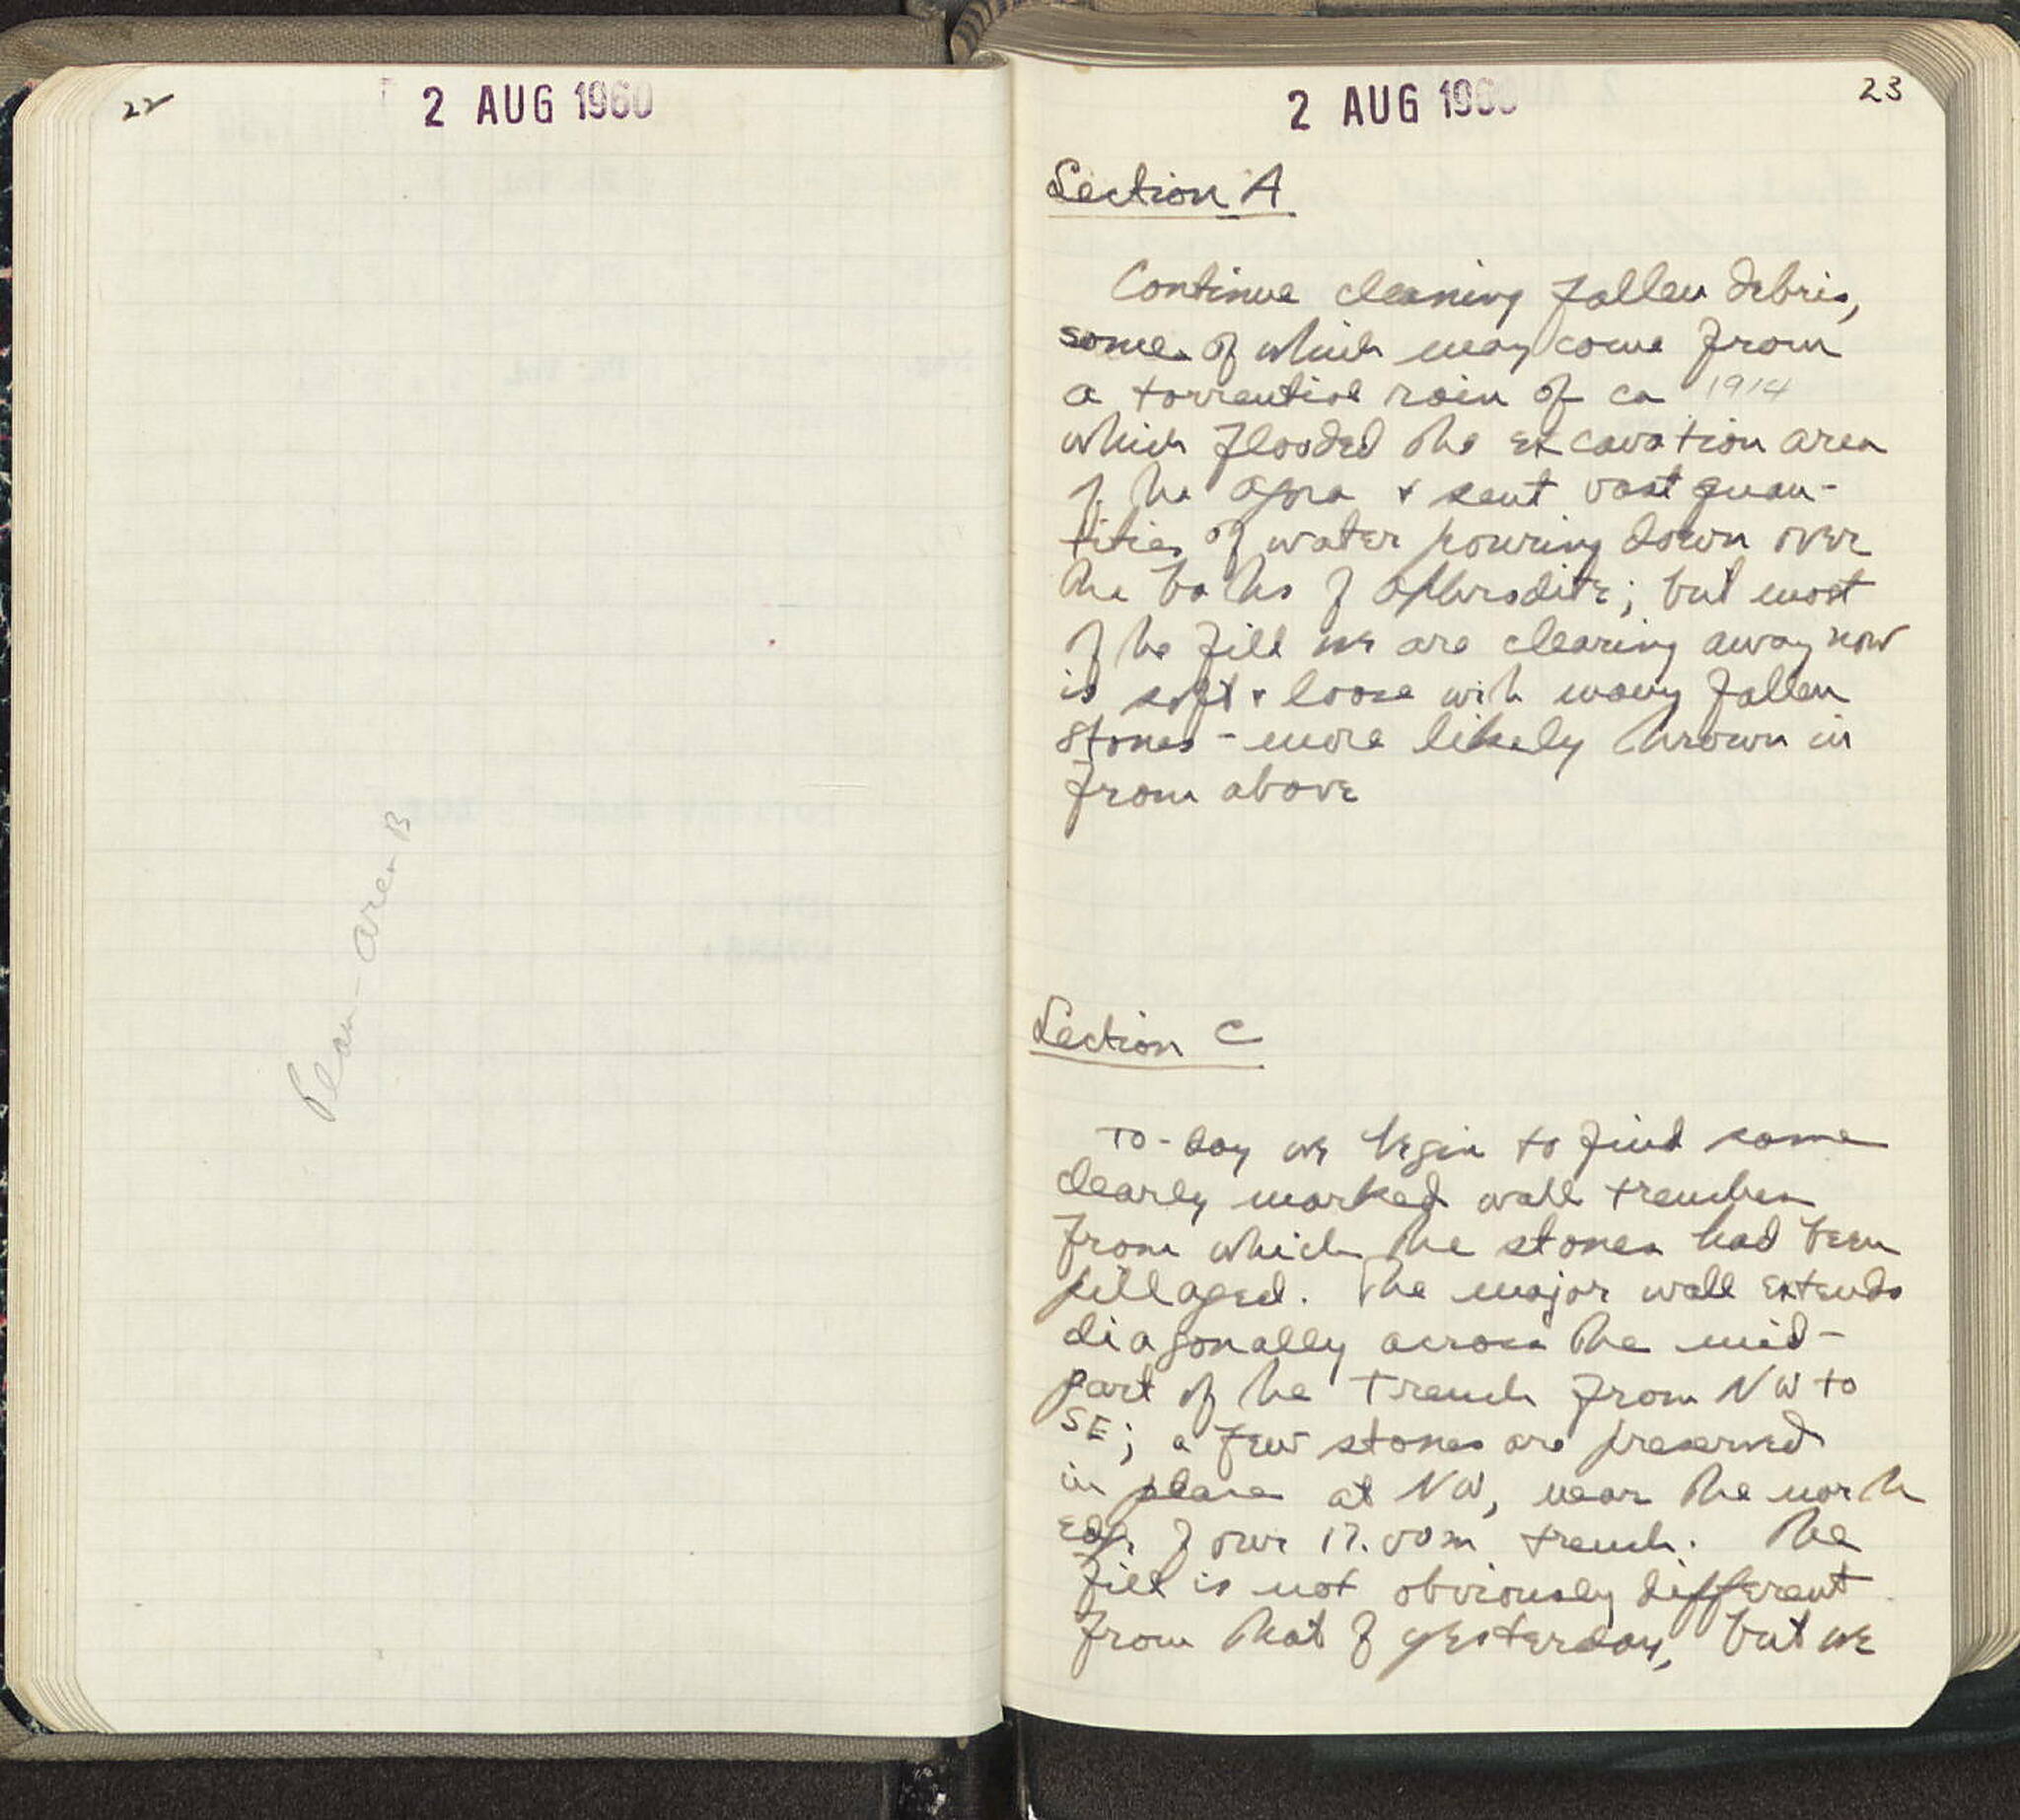 22
2 AUG 1960
Plan - area B
2 AUG 1960
23
Section A
Continue cleaning fallen debris,
some of which may come from
a torrential rain of ca 1914
which flooded the excavation area
of the agora & sent vast quan-
tities of water pouring down over
the baths of Aphrodite; but most
of the fill we are clearing away now
is soft & loose with many fallen
stones - more likely thrown in
from above
Section C
To-day we begin to find some
clearly marked wall trenches
from which the stones had been
pillaged. The major wall extends
diagonally across the mid-
part of the trench from NW to
SE; a few stones are preserved
in place at NW, near the north
edge of our 17.00m trench. The
fill is not obviously different
from that of yesterday, but we